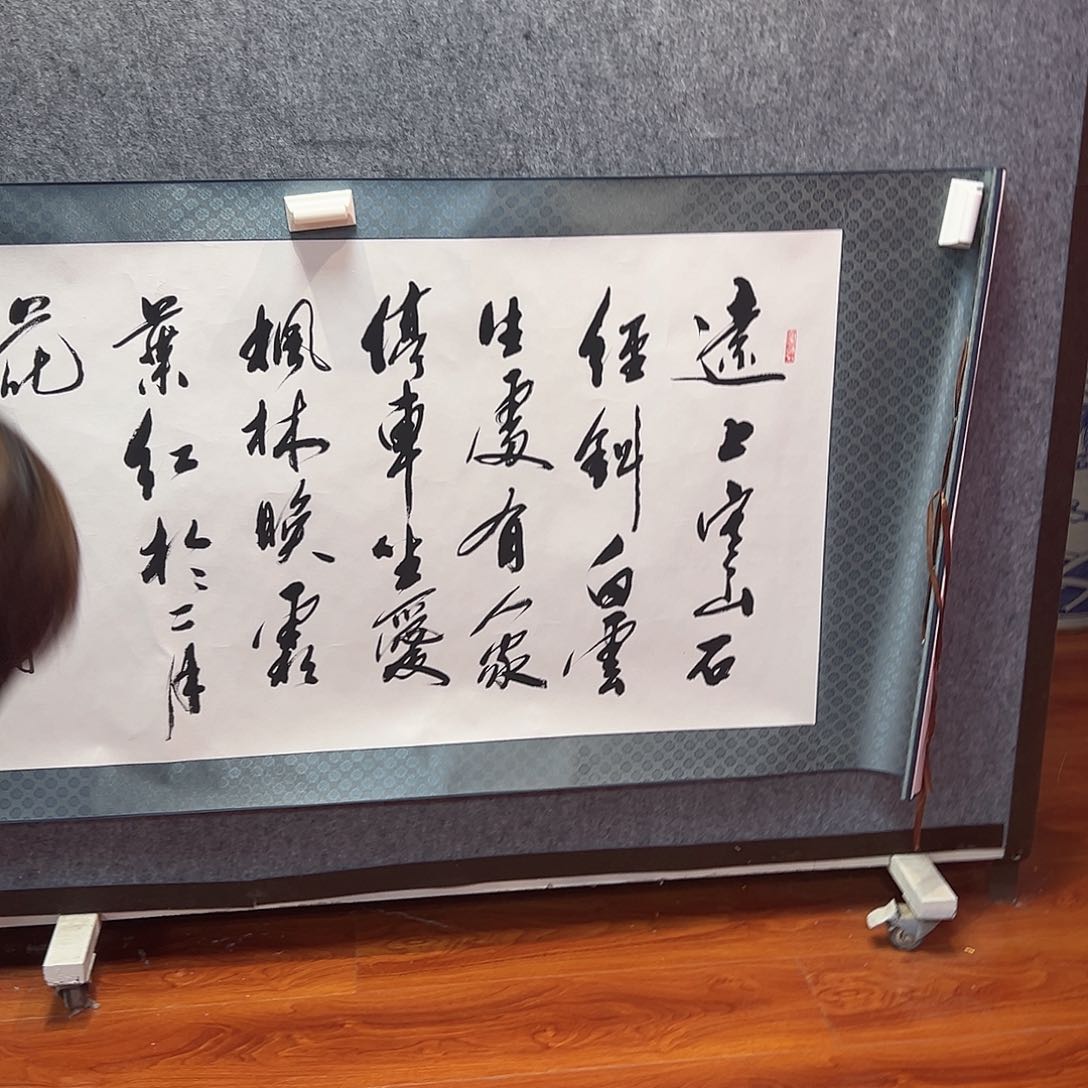 遠上寒山石
經斜白雲
生處有人家
停車坐愛
楓林晚霜
葉紅於二月
花